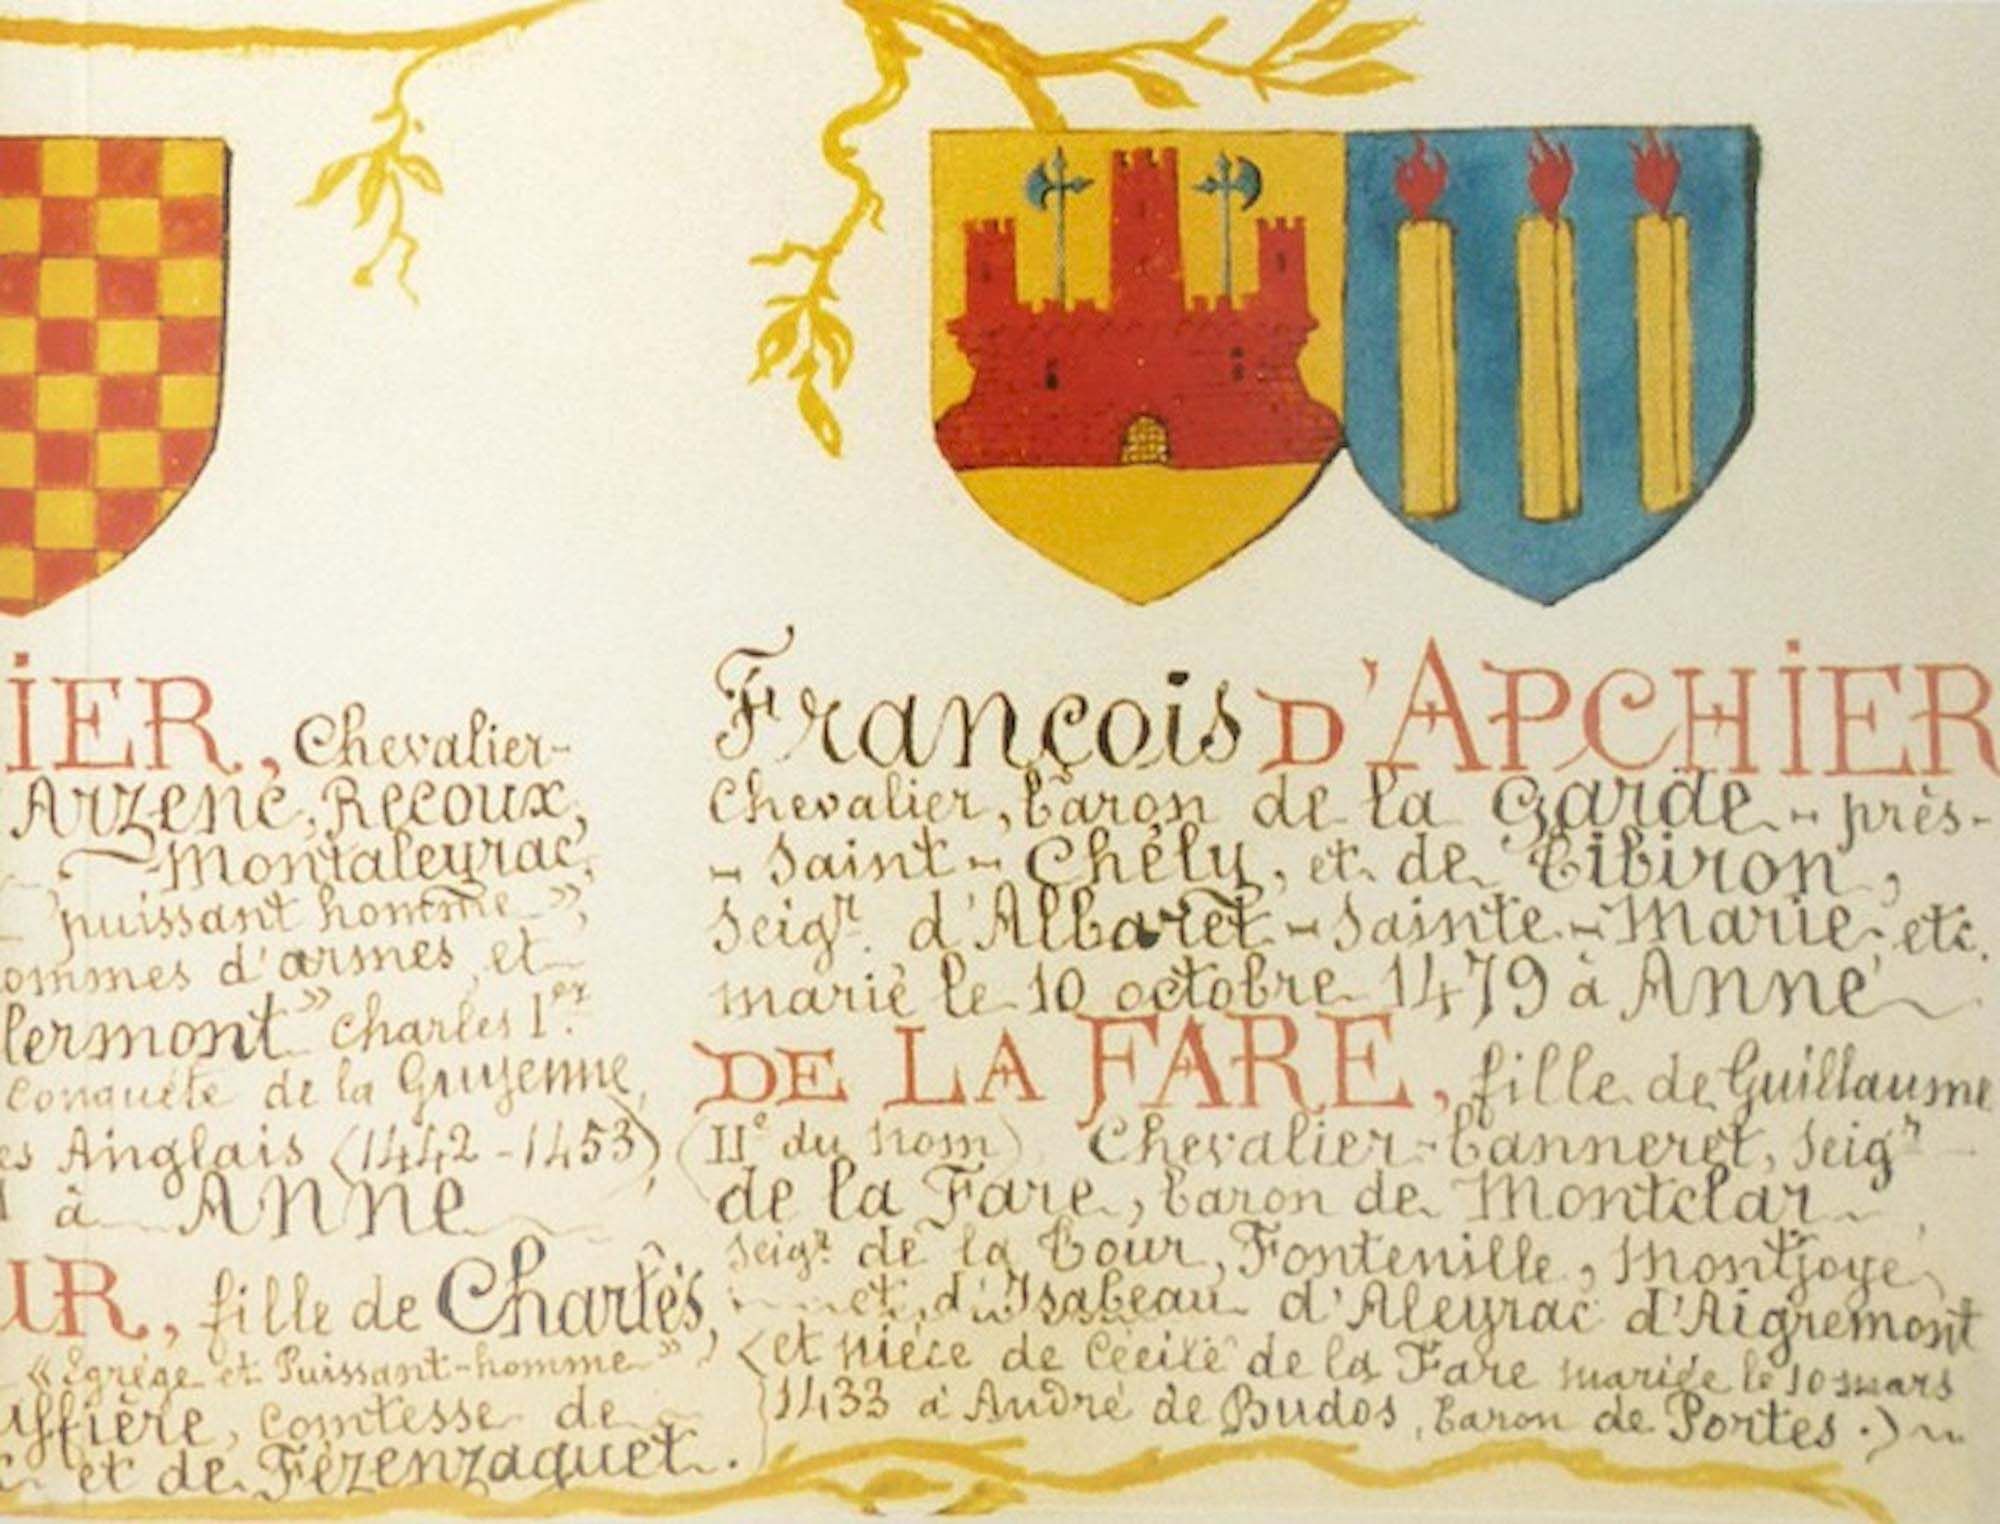 IER, Chevalier-
Arzenc, Recoux,
Montaleyrac,
puissant homme »,
ommes d'armes, et
lermont" Charles Ier
Conquête de la Guyenne,
es Anglais (1442-1453),
à Anne
UR, fille de Charles,
« Egrége et Puissant-homme »
uffière, comtesse de
et de Fézenzaguet.
François D'APCHIER
Chevalier, baron de la Garde-près-
-Saint-Chély, et de Tibiron,
Seigr d'Albaret-Sainte-Marie, etc.
marié le 10 octobre 1479 à Anne
DE LA FARE, fille de Guillaume
(IIe du nom) Chevalier-banneret, Seigr
de la Fare, baron de Montclar
Seigr de la Tour, Fontenille, Montjoye
et d'Isabeau d'Aleyrac d'Aigremont
(et nièce de Cécile de la Fare mariée le 10 mars
1433 à André de Budos, baron de Portes.)